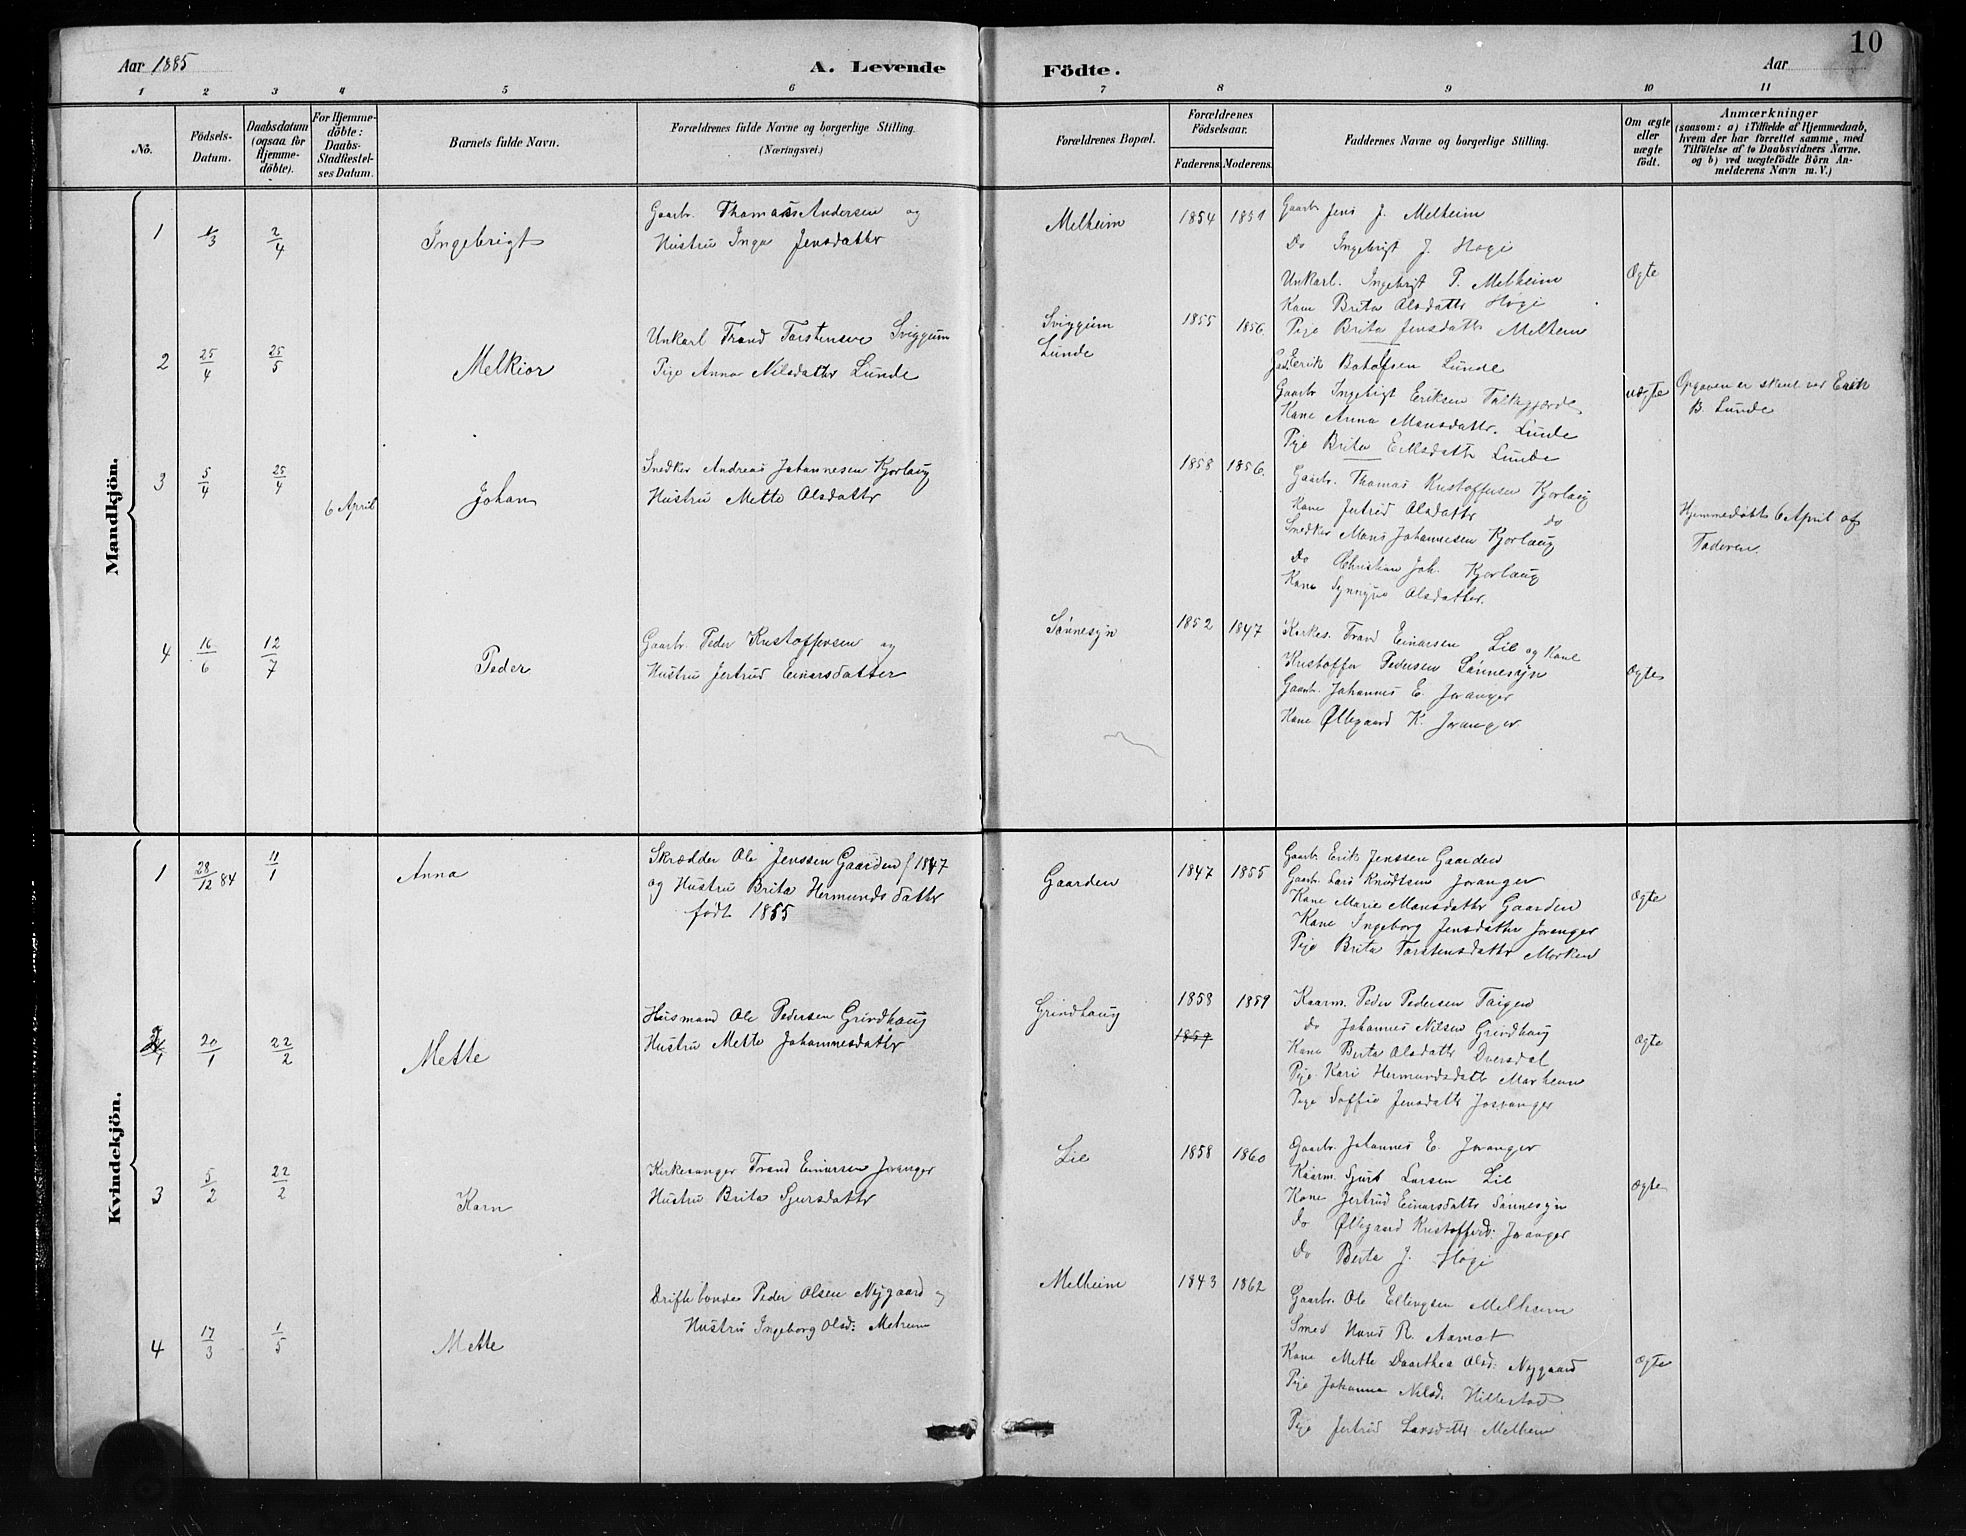 Aar 1885
A. Levende
Födte.
Aar
10
1 2 3 4 5 6 7 8 9 10 11
No.
Födsels-
Datum.
Daabsdatum
(ogsaa for
Hjemme-
döbte).
For Hjemme-
döbte:
Daabs-
Stadfæstel-
ses Datum.
Barnets fulde Navn.
Forældrenes fulde Navne og borgerlige Stilling.
(Næringsvei.)
Forældrenes Bopæl.
Forældrenes
Födselsaar.
Faderens.
Moderens.
Faddernes Navne og borgerlige Stilling.
Om ægte
eller
uægte
födt.
Anmærkninger
(saasom: a) i Tilfælde af Hjemmedaab,
hvem der har forrettet samme, med
Tilföielse af to Daabsvidners Navne.
og b) ved uægtefödte Börn An-
melderens Navn m. V.)
Mandkjön.
1
1/3
2/4
Ingebrigt
Gaarbr. Thomas Andersen og
Hustru Inga Jensdattr
Melheim
1854
1851
Gaarbr Jens J. Melheim
Do Ingebrigt J. Høgi
Unkarl. Ingebrigt P. Melheim
Kone Brita Olsdattr Høgi
Pige Brita Jensdattr Melheim
Ægte
2
25/4
25/5
Melkior
Unkarl Trond Torstensen Sviggum
Pige Anna Nilsdattr Lunde
Sviggum
Lunde
1855
1856
Erik Botolfsen Lunde
Gaarbr Ingebrigt Eriksen Talkegjerde
Kone Anna Monsdattr. Lunde
Pige Brita Eriksdattr Lunde
uægte
Opgaven er skeet ved Erik
B. Lunde
3
5/4
25/4
6 April
Johan
Snedker Andreas Johannesen Kjorlaug
Hustru Mette Olsdattr
1858
1856.
Gaarbr. Thomas Kristoffersen Kjorlaug
Kone Jertrud Olsdattr do
Smedker Mons Johannesen Kjorlaug
Do Christian Joh. Kjorlaug
Kone Synnyva Olsdatter.
Hjemmedøbt 6 April af
Faderen.
4
16/6
12/7
Peder
Gaarbr. Peder Kristoffersen og
Hustru Jertrud Einarsdatter
Sønnesyn
1852
1847
Kirkes. Trond Einarsen Lie og Kone
Kristoffer Pedersen Sønnesyn
Gaarbr. Johannes E. Joranger
Kone Øllegaard K. Joranger
Ægte
Kvindekjön.
1
28/12 84
11/1
Anna
Skrædder Ole Jenssen Gaarden f 1847
og Hustru Brita Hermundsdattr
født 1855
Gaarden
1847
1855
Gaarbr Erik Jenssen Gaarden
Gaarbr. Lars Knudtsen Joranger
Kone Marie Monsdattr Gaarden
Kone Ingeborg Jensdattr Joranger
Pige Brita Torstensdattr Morken
Ægte
2
20/1
22/2
Mette
Husmand Ole Pedersen Grindhaug
Hustru Mette Johannesdattr
Grindhaug
1858
1859
1859
Kaarm. Peder Pedersen Taigen
Do Johannes Nilsen Grindhaug
Kone Berta Olsdattr Dversdal
Pige Kari Hermundsdattr Marheim
Pige Soffie Jensdattr Joranger
Ægte
3
5/2
22/2
Karn
Kirkesanger Trond Einarsen Joranger
Hustru Brita Sjursdattr
Lie
1858
1860
Gaarbr. Johannes E. Joranger
Kaarm. Sjur Larsen Lie
Kone Jertrud Einarsdattr Sønnesyn
do Øllegaard Kristofferd: Joranger
do Berta J. Høgi
Ægte
4
17/3
1/5
Mette
Driftebonde Peder Olsen Nygaard og
Hustru Ingeborg Olsd:
Melheim
1843
1862
Gaarbr. Ole Ellingsen Melheim
Smed Hans R. Aamot
Kone Mette Daarthea Olsd: Nygaard
Pige Johanna Nilsd. Hillestad
Pige Jertrud Larsdattr Melheim
Ægte